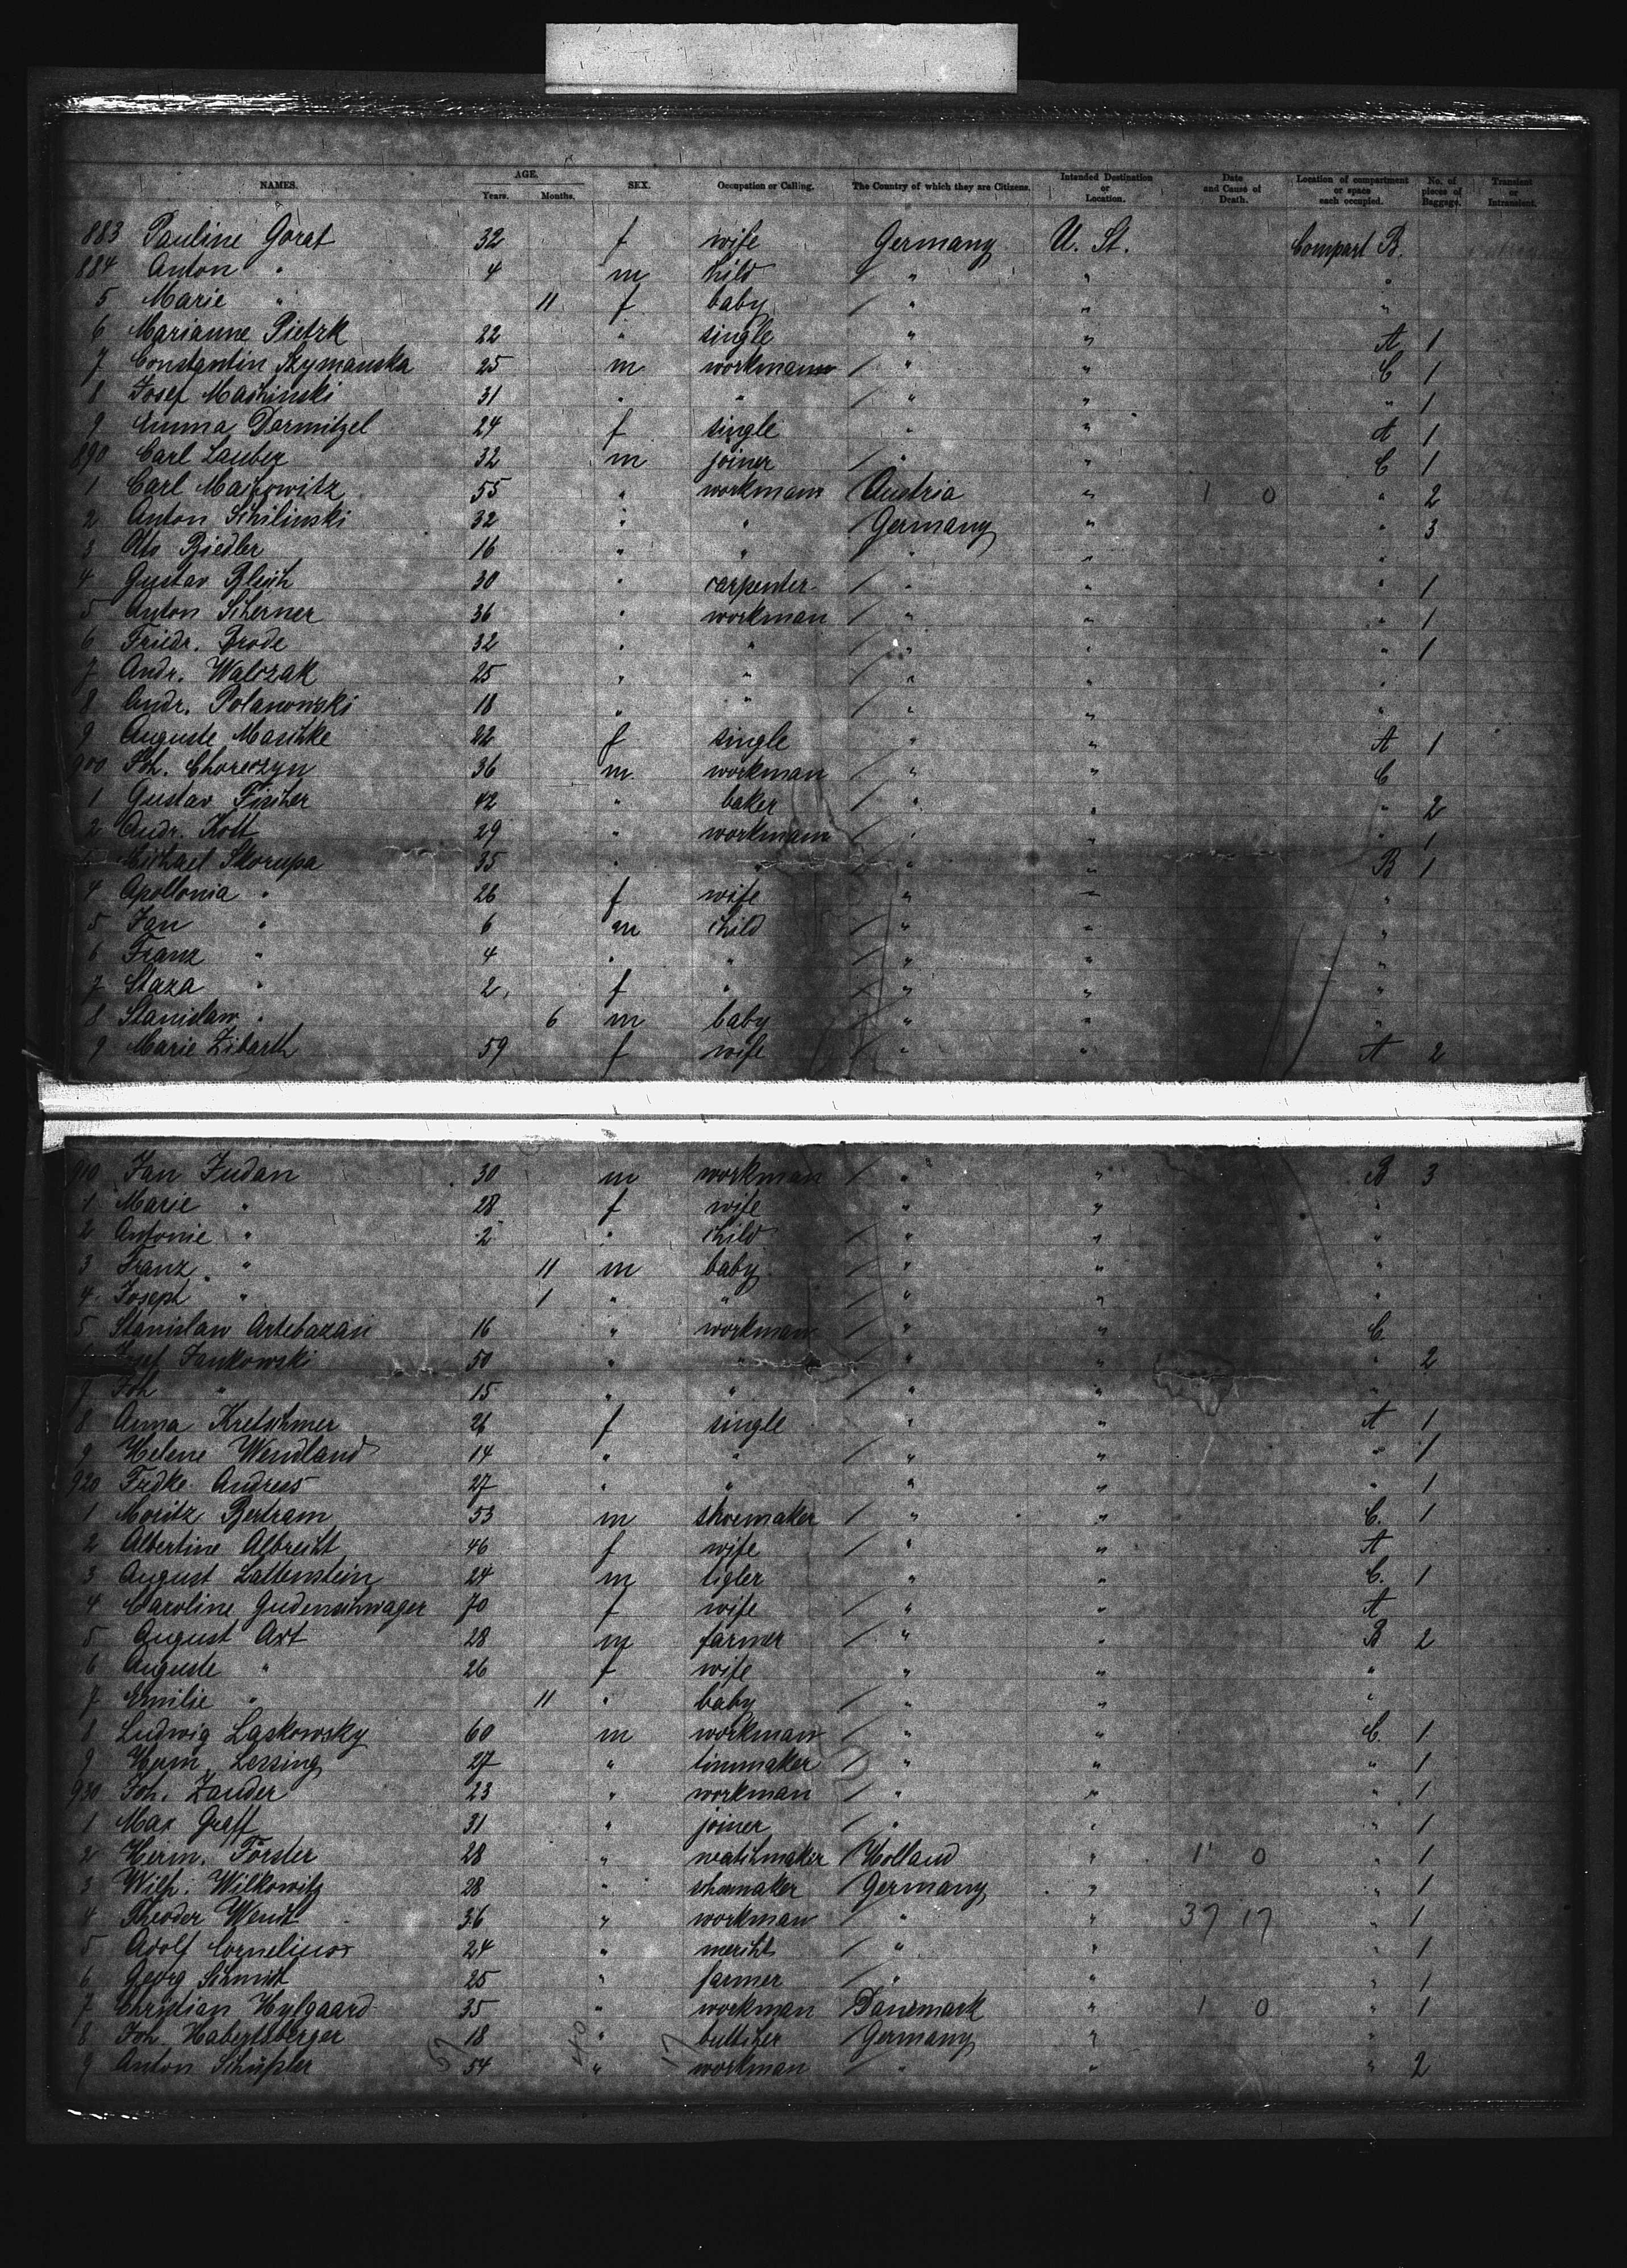 NAMES. AGE. Years. Months. SEX. Occupation or Calling. The Country of which they are Citizens. Intended Destination or Location. Date and Cause of Death. Location of compartment or space each occupied. No. of pieces of Baggage. Transient or Intransient.
883 Pauline Gorat 32 f wife Germany U. St. Compart B.
884 Anton " 4 m child / " " "
5 Marie " 11 f baby / " " "
6 Marianne Pietrk 22 " single " " A 1
7 Constantin Szymanska 25 m workman / " " C 1
8 Josef Maschinski 31 " " / " " " 1
9 Emma Dermitzel 24 f single " " A 1
890 Carl Lauber 32 m joiner / " " C 1
1 Carl 55 " workman / Austria " 1 0 " 2
2 Anton Schilinski 32 " " / Germany " " 3
3 Otto Biedler 16 " " " " "
4 Gustav Blech 30 " carpenter / " " " 1
5 Anton Scherner 36 " workman / " " " 1
6 Friedr. Brode 32 " " / " " " 1
7 Andr. Walczak 25 " " / " " "
8 Andr. Polanowski 18 " " / " " "
9 Auguste Maschke 22 f single " " A 1
900 Joh. Choreczyn 36 m workman / " " C
1 Gustav Fischer 42 " baker / " " " 2
2 Andr. Kott 29 " workman / " " " 1
Michael Skorupa 35 " " " " B 1
4 Apollonia " 26 f wife " " "
5 Jan " 6 m child / " " "
6 Franz " 4 " " / " " "
7 Staza " 2 f " / " " "
8 Stanislaw " 6 m baby / " " "
9 Marie Zibarth 59 f wife / " " A 2
910 Jan Judan 30 m workman / " " B 3
1 Marie " 28 f wife " " "
2 Antonie " 2 " child / " " "
3 Franz " 11 m baby / " " "
4 Joseph " 1 " " / " " "
5 Stanislaw 16 " workman / " " C.
Josef Jankowski 50 " " / " " " 2
7 Joh " 15 " " / " " "
8 Anna Kretschmer 26 f single " " A 1
9 Helene Wendland 14 " " / " " " 1
920 Fridke Andress 27 " " " " " 1
1 Moritz Bertram 53 m shoemaker / " " C. 1
2 Albertine Albrecht 46 f wife / " " A
3 August Lattenstein 24 m tigler " " C. 1
4 Caroline Gudenschwager 70 f wife / " " A
5 August Axt 28 m farmer / " " B 2
6 Auguste " 26 f wife " " "
7 Emilie " 11 " baby / " " "
8 Ludwig Laskowsky 60 m workman / " " C. 1
9 Herm. Lessing 27 " tinmaker / " " " 1
930 Joh. Zander 23 " workman / " " " 1
1 Max Graff 31 " joiner / " " " 1
2 Herm. Förster 28 " watchmaker / Holland " 1 0 " 1
3 Wilh. Wilkowitz 28 " shomaker / Germany " " 1
4 Theoder Wendt 36 " workman / " " 37 17 " 1
5 Adolf Cornelius 24 " mercht / " " " 1
6 Georg Schmidt 25 " farmer / " " " 1
7 Christian Hylgaard 35 " workman Danemark " 1 0 " 1
8 Joh. Habertsberger 18 " buttcher / Germany " "
9 Anton Schüssler 54 " workman / " " " 2